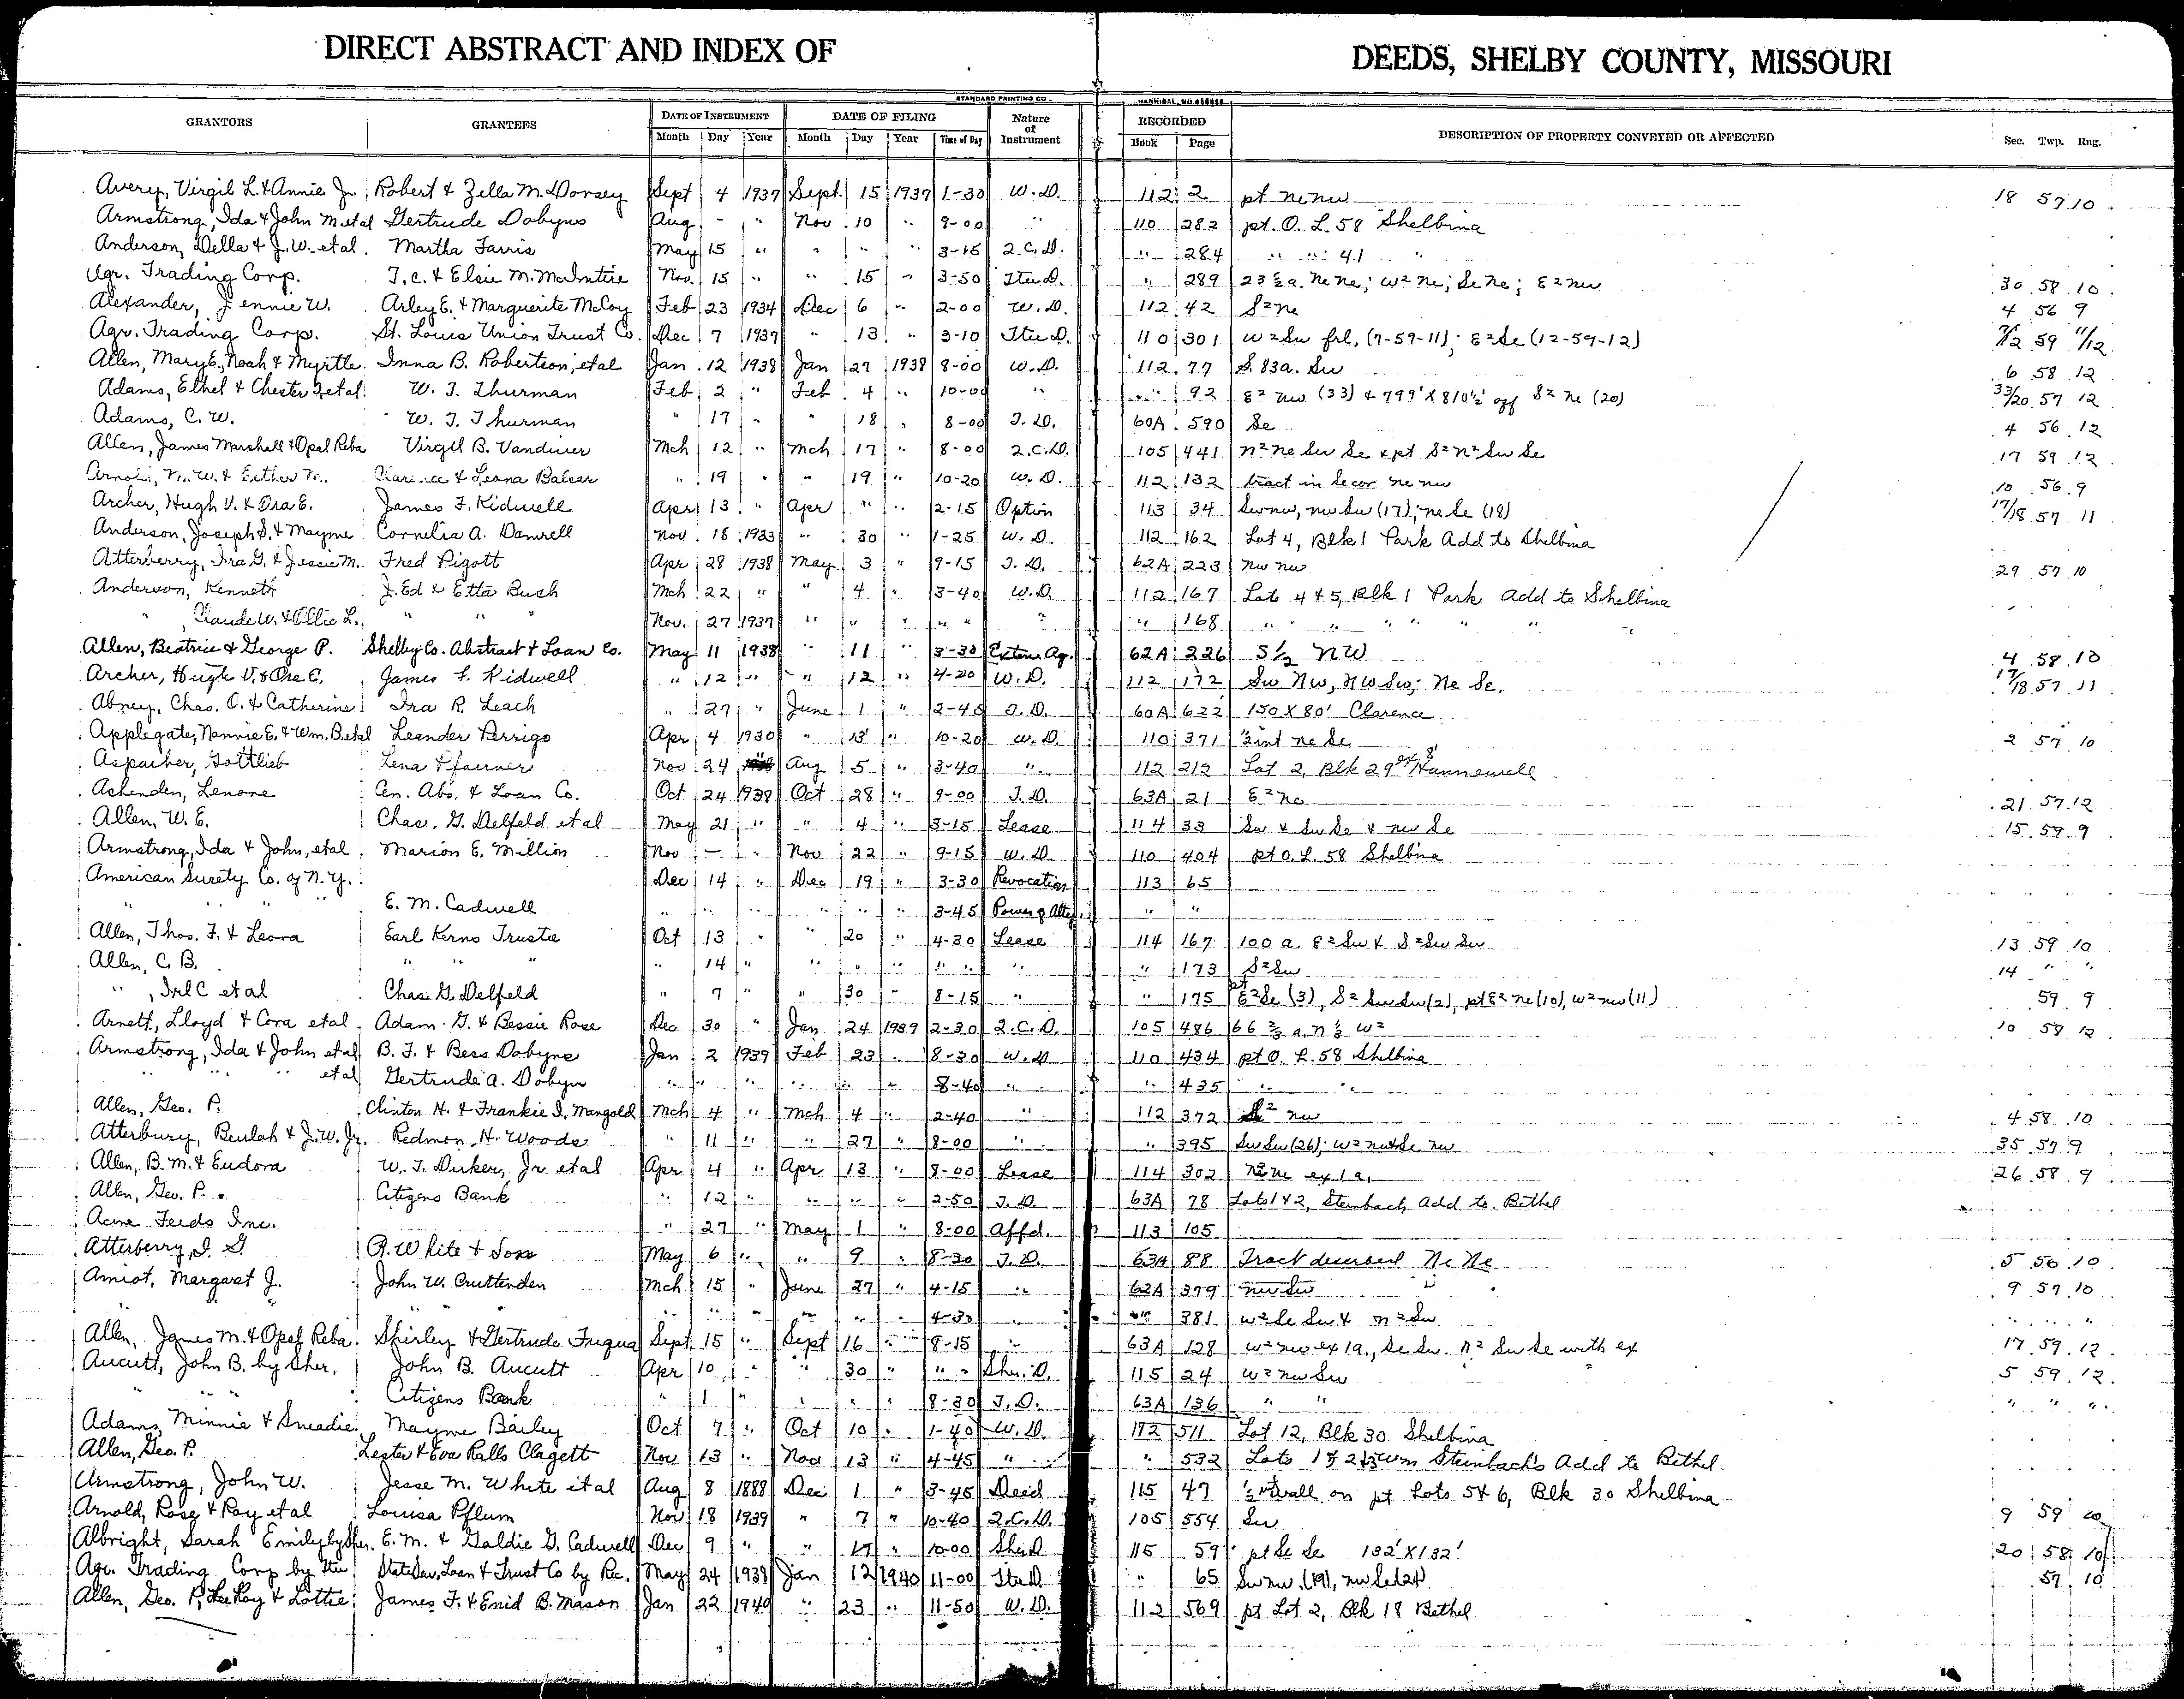 DIRECT ABSTRACT AND INDEX OF DEEDS, SHELBY COUNTY, MISSOURI
STANDARD PRINTING CO. HANNIBAL, MO
GRANTORS GRANTEES DATE OF INSTRUMENT DATE OF FILING Nature of Instrument RECORDED DESCRIPTION OF PROPERTY CONVEYED OR AFFECTED Sec. Twp. Rng.
Month Day Year Month Day Year Time of Day Book Page
Avery, Virgil L. & Annie Jr. Robert & Zella M. Dorsey Sept 4 1937 Sept. 15 1937 1-30 W.D. 112 2 pt ne nw 18 57 10
Armstrong, Ida & John M et al Gertrude Dobyns Aug - " Nov 10 " 9-00 " 110 282 pt. O. L. 58 Shelbina
Anderson, Della & J.W. et al. Martha Farris May 15 " " " " 3-15 Q.C.D. " 284 " " " 41 "
Agr. Trading Corp. T.C. & Elsie M. McIntire Nov. 15 " " 15 " 3-50 Stu D. " 289 23 ½ a. ne ne; W² ne; Se ne; E² nw 30 58 10
Alexander, Jennie W. Arley E. & Marguerite McCoy Feb 23 1934 Dec 6 " 2-00 W.D. 112 42 S² ne 4 56 9
Agr. Trading Corp. St. Louis Union Trust Co. Dec 7 1937 " 13 " 3-10 Stu D. 110 301 W² Sw frl. (7-59-11); E² Se (12-59-12) 7/12 59 11/12
Allen, Mary E., Noah & Myrtle Inna B. Robertson, et al Jan. 12 1938 Jan 27 1938 8-00 W.D. 112 77 S. 83a. Sw 6 58 12
Adams, Ethel & Chester J et al W. T. Thurman Feb 2 " Feb. 4 " 10-00 " " 92 E² nw (33) & 799' X 810½' off S² ne (20) 33/20 57 12
Adams, C. W. W. T. Thurman " 17 " " 18 " 8-00 T.D. 60A 590 Se 4 56 12
Allen, James Marshall & Opal Reba Virgil B. Vandiver Mch 12 " Mch 17 " 8-00 Q.C.D. 105 441 n² ne Sw Se & pt S² n² Sw Se 17 59 12
Arnold, M. W. & Esther M. Clarence & Leona Balsar " 19 " " 19 " 10-20 W.D. 112 132 tract in Se cor ne nw 10 56 9
Archer, Hugh V. & Ora E. James F. Kidwell Apr 13 " Apr " " 2-15 Option 113 34 Sw nw, nw Sw (17); ne Se (18) 17/18 57 11
Anderson, Joseph S. & Mayme Cornelia A. Damrell Nov. 18 1933 " 30 " 1-25 W.D. 112 162 Lot 4, Blk 1 Park Add to Shelbina
Atterberry, Ira G. & Jessie M. Fred Pigott Apr 28 1938 May 3 " 9-15 T.D. 62A 223 nw nw 29 57 10
Anderson, Kenneth J. Ed & Etta Bush Mch 22 " " 4 " 3-40 W.D. 112 167 Lots 4 & 5, Blk 1 Park Add to Shelbina
" , Claude W. & Ollie L. " " " Nov. 27 1937 " " " " " " " 168 " " " " " " "
Allen, Beatrice & George P. Shelby Co. Abstract & Loan Co. May 11 1938 " 11 " 3-30 Exten. Ag. 62A 226 S ½ NW 4 58 10
Archer, Hugh V. & Ora E. James F. Kidwell " 12 " " 12 " 4-20 W.D. 112 172 Sw Nw, NW Sw; Ne Se. 17/18 57 11
Abney, Chas. O. & Catherine Ira R. Leach " 27 " June 1 " 2-45 T.D. 60A 622 150 X 80' Clarence
Applegate, Nannie E. & Wm. B. et al Leander Perrigo Apr 4 1930 " 13 " 10-20 W.D. 110 371 ½ int ne Se 2 57 10
Aspacher, Gottlieb Lena Pfanner Nov. 24 Aug 5 " 3-40 " 112 212 Lot 2, Blk 29 Hunnewell
Ashenden, Lenore Cen. Abs. & Loan Co. Oct 24 1938 Oct 28 " 9-00 T.D. 63A 21 E² ne 21 57 12
Allen, W. E. Chas. G. Delfeld et al May 21 " " 4 " 3-15 Lease 114 33 Sw & Sw Se & nw Se 15 59 9
Armstrong, Ida & John, et al Marion E. Million Nov - " Nov 22 " 9-15 W.D. 110 404 pt O. L. 58 Shelbina
American Surety Co. of N.Y. Dec 14 " Dec 19 " 3-30 Revocation 113 65
" " " E. M. Cadwell " " " " " " 3-45 Power of Atty. " "
Allen, Thos. F. & Leora Earl Kerns Trustee Oct 13 " " 20 " 4-30 Lease 114 167 100 a. E² Sw & S² Sw Sw 13 59 10
Allen, C. B. " " " " 14 " " " " " " " " 173 S² Sw 14 " "
" , Irl C et al Chas. G. Delfeld " 7 " " 30 " 8-15 " " 175 pt E² Se (3), S² Sw Sw (2), pt E² ne (10), W² nw (11) 59 9
Arnett, Lloyd & Cora et al Adam G. & Bessie Rose Dec 30 " Jan 24 1939 2-30 Q.C.D. 105 486 66 ⅔ a. n ½ W² 10 58 12
Armstrong, Ida & John et al B. F. & Bess Dobyns Jan 2 1939 Feb 23 " 8-30 W.D. 110 434 pt O. L. 58 Shelbina
" " " et al Gertrude A. Dobyn " " " " " " 8-40 " " 435 " "
Allen, Geo. P. Clinton H. & Frankie I. Mangold Mch 4 " Mch 4 " 2-40 " 112 372 S² nw 4 58 10
Atterbury, Beulah & J.W. Jr. Redmon H. Woods " 11 " " 27 " 8-00 " " 395 Sw Sw (26); W² nw & Se nw 35 57 9
Allen, B. M. & Eudora W. T. Durker, Jr et al Apr 4 " Apr 13 " 8-00 Lease 114 302 n² ne ex 1 a. 26 58 9
Allen, Geo. P. Citizens Bank " 12 " " " " 2-50 T.D. 63A 78 Lots 1 & 2, Steinbach Add to Bethel
Acme Feeds Inc. " 27 " May 1 " 8-00 Affd. 113 105
Atterberry, I. G. R. White & Sons May 6 " " 9 " 8-30 T.D. 63A 88 Tract described Ne Ne 5 56 10
Amiot, Margaret J. John W. Cruttenden Mch 15 " June 27 " 4-15 " 62A 379 nw Sw 9 57 10
" " " " " " " " " " 4-30 " " 381 W² Se Sw & n² Sw " " "
Allen, James M. & Opal Reba Shirley & Gertrude Fuqua Sept 15 " Sept 16 " 8-15 " 63A 128 W² nw ex 1a., Se Sw. n² Sw Se with ex 17 59 12
Aucutt, John B. by Sher. John B. Aucutt Apr 10 " " 30 " " " Sher. D. 115 24 W² nw Sw 5 59 12
" " " Citizens Bank " 1 " " " " 8-30 T.D. 63A 136 " " " " "
Adams, Minnie & Sneadie Mayme Bailey Oct 7 " Oct 10 " 1-40 W.D. 112 511 Lot 12, Blk 30 Shelbina
Allen, Geo. P. Lester & Eva Ralls Clagett Nov 13 " Nov 13 " 4-45 " " 532 Lots 1 & 2 Wm Steinbach's Add to Bethel
Armstrong, John W. Jesse M. White et al Aug 8 1888 Dec 1 " 3-45 Deed 115 47 ½ int wall on pt Lots 5 & 6, Blk 30 Shelbina
Arnold, Rose & Roy et al Louisa Pflum Nov 18 1939 " 7 " 10-40 Q.C.D. 105 554 Sw 9 59 10
Albright, Sarah Emily by Sher. E. M. & Goldie G. Cadwell Dec 9 " " 19 " 10-00 She. D 115 59 pt Se Se 132' X 132' 20 58 10
Agr. Trading Corp by Stu State Sav. Loan & Trust Co by Rec. May 24 1938 Jan 12 1940 11-00 Stu D. " 65 Sw nw (19), nw Se (24) 57 10
Allen, Geo. P., LeeRoy & Lottie James F. & Enid B. Mason Jan 22 1940 " 23 " 11-50 W.D. 112 569 pt Lot 2, Blk 18 Bethel